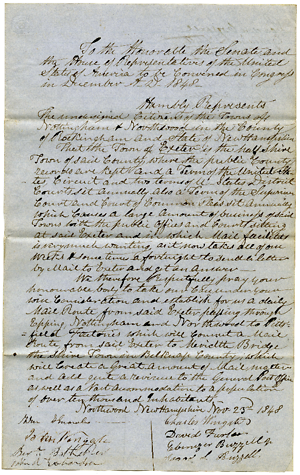 To the Honorable the Senate and
the House of Representatives of the United
States of America to be Convened in Congress
in December A.D. 1848
Humbly Represents
The undersigned Citizens of the Towns of
Nottingham & Northwood in the County
of Rockingham and State of New Hampshire
That the Town of Exeter is the half Shire
Town of said County where the public County
records are kept and a Term of the United
States Circuit and two terms of States District
Court set annually also a Term of the Supreme
Court and Court of Common Pleas sit annually
which Causes a large amount of business of said
Towns with the public Offices and Courts sitting
at said Exeter in which Mail facilities
is very much wanting as it now takes all of one
Week & sometimes a fortnight to send a letter
by Mail to Exeter and get an answer
We therefore respectfully pray your
honourable body to take our Case into your
wise Consideration and establish for us a daily
Mail Route from said Exeter passing through
Epping, Nottingham and Northwood to
which will connect a Mail
Route from said Exeter to Meredith Bridge
the Shire Town in Belknap County which
will Create a great amount of Mail matter
and add much to the General Post Office
as well as a vast accommodation to a population
of over ten thousand Inhabitants
Northwood New Hampshire Nov 23rd 1848
Charles
David
Ebenezer Buzzell
Buzzell
John